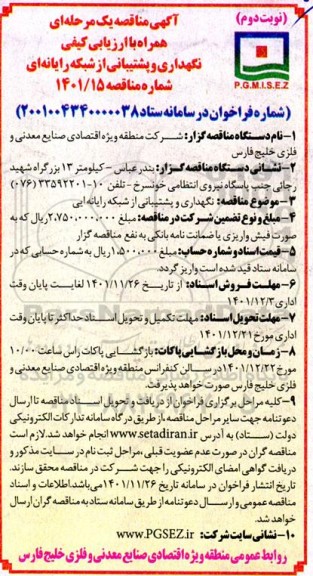 (نوبت دوم)
آگهی مناقصه یک مرحله‌ای
همراه با ارزیابی کیفی
نگهداری و پشتیبانی از شبکه رایانه‌ای
شماره مناقصه ۱۴۰۱/۱۵
P.G.M.I.S.E.Z
(شماره فراخوان در سامانه ستاد ۲۰۰۱۰۰۴۳۴۰۰۰۰۰۳۸)
۱-نام دستگاه مناقصه گزار: شرکت منطقه ویژه اقتصادی صنایع معدنی و
فلزی خلیج فارس
۲-نشانی دستگاه مناقصه گزار: بندرعباس - کیلومتر ۱۳ بزرگراه شهید
رجائی جنب پاسگاه نیروی انتظامی خونسرخ - تلفن ۱۰-۳۳۵۹۲۲۰۱ (۰۷۶)
۳-موضوع مناقصه: نگهداری و پشتیبانی از شبکه رایانه‌ایی
۴-مبلغ و نوع تضمین شرکت در مناقصه: مبلغ ۲،۷۵۰،۰۰۰،۰۰۰ ریال که به
صورت فیش واریزی یا ضمانت نامه بانکی به نفع مناقصه گزار
۵-قیمت اسناد و شماره حساب: مبلغ ۱،۵۰۰،۰۰۰ ریال به شماره حسابی که در
سامانه ستاد قید شده است واریز گردد.
۶-مهلت فروش اسناد: از تاریخ ۱۴۰۱/۱۱/۲۶ لغایت پایان وقت
اداری ۱۴۰۱/۱۲/۳
۷-مهلت تحویل اسناد: مهلت تکمیل و تحویل اسناد حداکثر تا پایان وقت
اداری مورخ ۱۴۰۱/۱۲/۲۱
۸-زمان و محل بازگشایی پاکات: بازگشایی پاکات راس ساعت ۱۰/۰۰
مورخ ۱۴۰۱/۱۲/۲۲ در سالن کنفرانس منطقه ویژه اقتصادی صنایع معدنی و
فلزی خلیج فارس صورت خواهد پذیرفت.
۹-کلیه مراحل برگزاری فراخوان از دریافت و تحویل اسناد مناقصه تا ارسال
دعوتنامه جهت سایر مراحل مناقصه، از طریق درگاه سامانه تدارکات الکترونیکی
دولت (ستاد) به آدرس www.setadiran.ir انجام خواهد شد. لازم است
مناقصه گران در صورت عدم عضویت قبلی، مراحل ثبت نام در سایت مذکور و
دریافت گواهی امضای الکترونیکی را جهت شرکت در مناقصه محقق سازند.
تاریخ انتشار فراخوان در سامانه تاریخ ۱۴۰۱/۱۱/۲۶ می‌باشد. اطلاعات و اسناد
مناقصه عمومی و ارسال دعوتنامه از طریق سامانه ستاد به مناقصه گران ارسال
خواهد شد.
۱۰-نشانی سایت شرکت: www.PGSEZ.ir
روابط عمومی منطقه ویژه اقتصادی صنایع معدنی و فلزی خلیج فارس